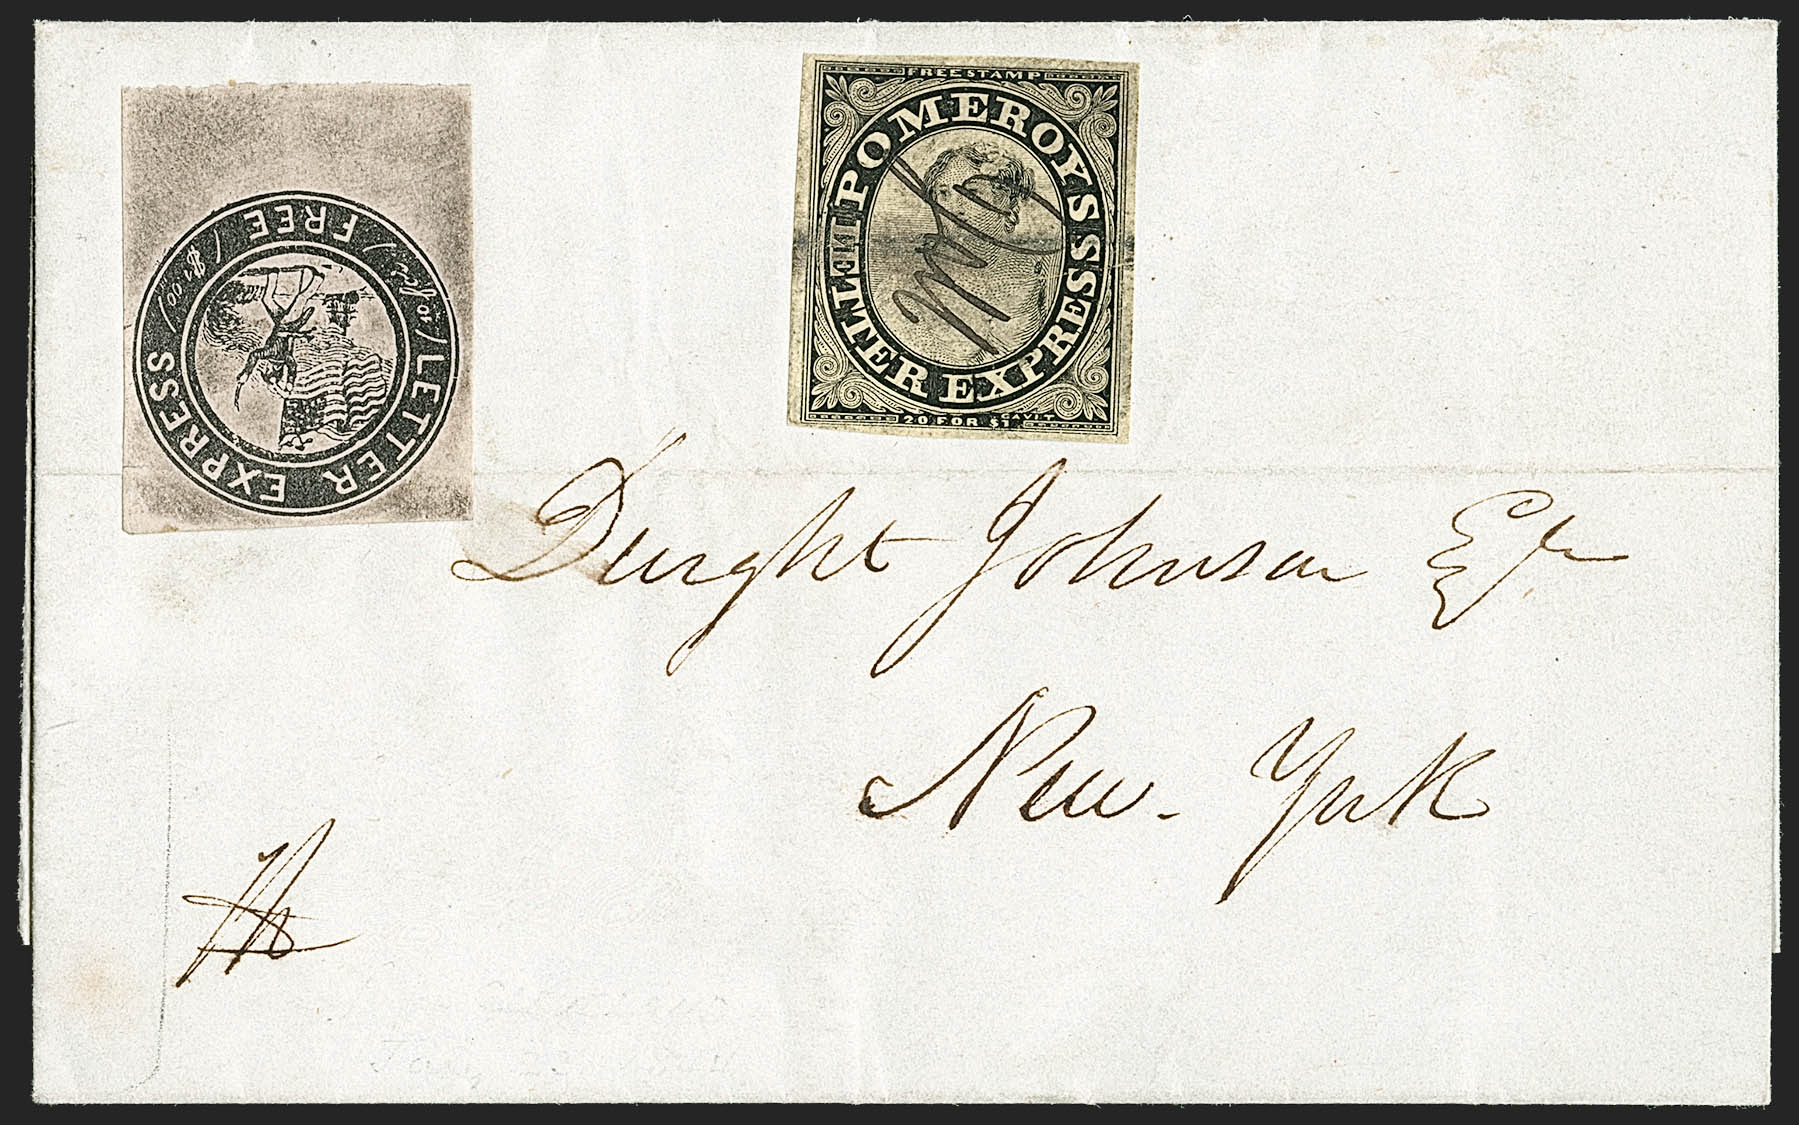 FREE
LETTER EXPRESS
10 for $1.00
FREE STAMP
POMEROYS LETTER EXPRESS
20 FOR $1
GAVIT
Dwight Johnson Esqr
New-York